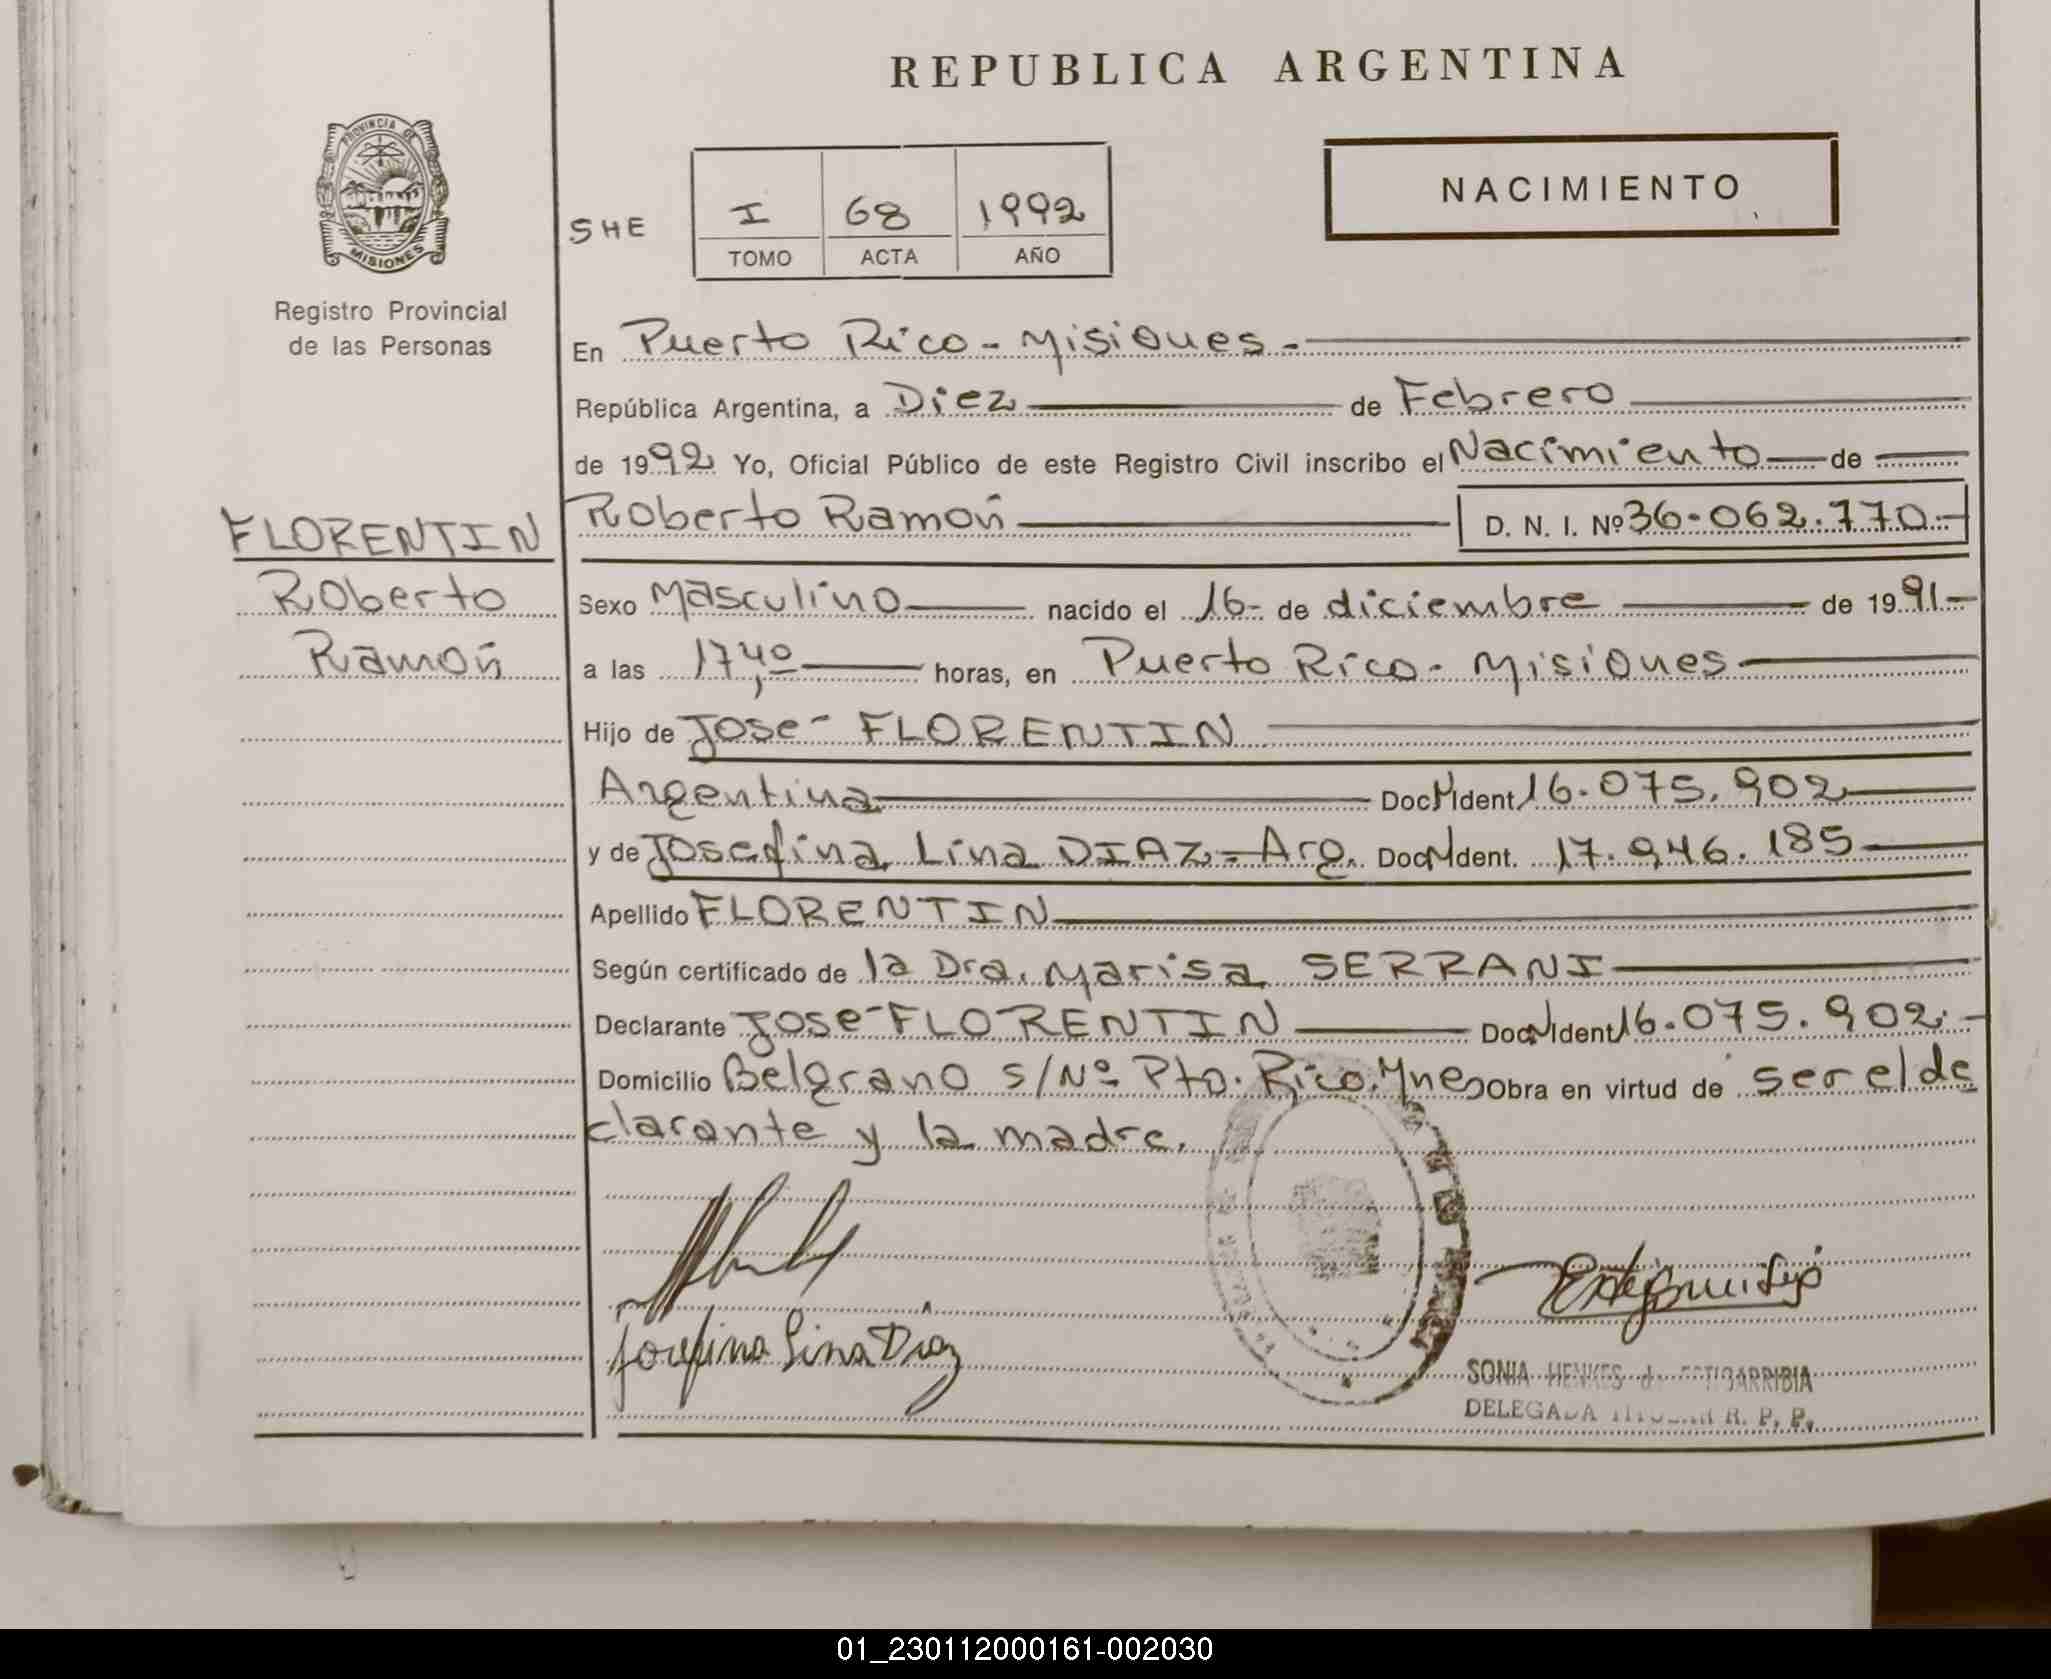 REPUBLICA ARGENTINA
PROVINCIA DE MISIONES
Registro Provincial
de las Personas
SHE
I 68 1992
TOMO ACTA AÑO
NACIMIENTO
En Puerto Rico - Misiones.-
República Argentina, a Diez de Febrero
de 1992 Yo, Oficial Público de este Registro Civil inscribo el Nacimiento de
FLORENTIN
Roberto
Ramón
Roberto Ramón D. N. I. Nº 36.062.770.-
Sexo Masculino nacido el 16- de diciembre de 1991-
a las 17,40 horas, en Puerto Rico - Misiones
Hijo de José FLORENTIN
Argentina Doc N Ident 16.075.902
y de Josefina Lina DIAZ - Arg. Doc N Ident. 17.946.185
Apellido FLORENTIN
Según certificado de la Dra. Marisa SERRANI
Declarante José FLORENTIN Doc N Ident 16.075.902.-
Domicilio Belgrano s/Nº Pto. Rico. Mnes Obra en virtud de ser el de
clarante y la madre.
Josefina Lina Diaz
SONIA HENKES de ESTIGARRIBIA
DELEGADA TITULAR R. P. P.
01_230112000161-002030